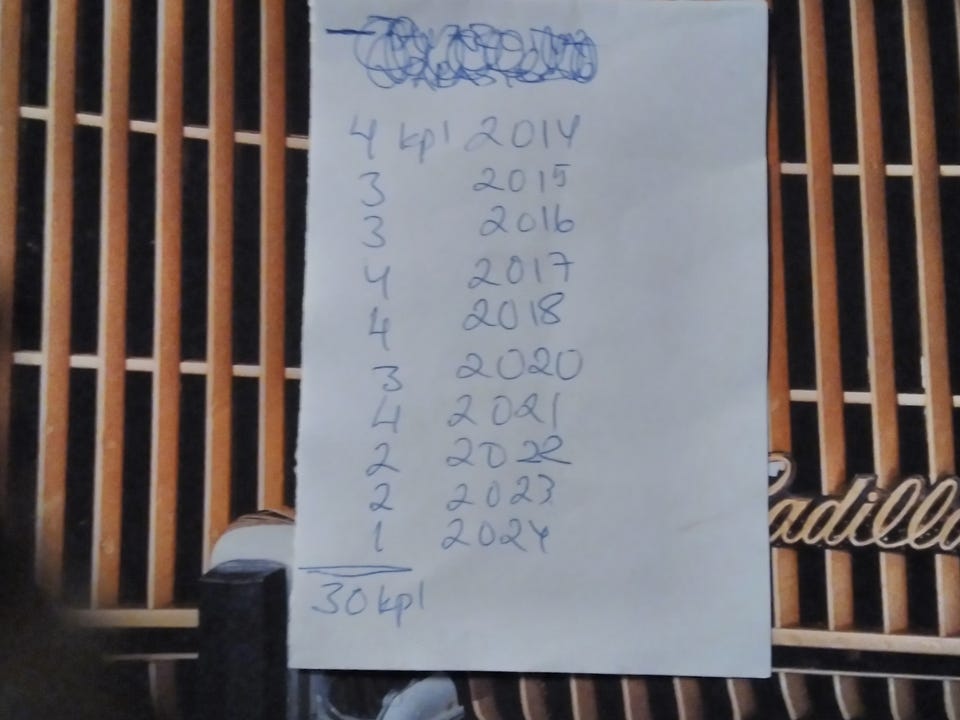 4 kpl 2014
3 2015
3 2016
4 2017
4 2018
3 2020
4 2021
2 2022
2 2023
1 2024
30 kpl